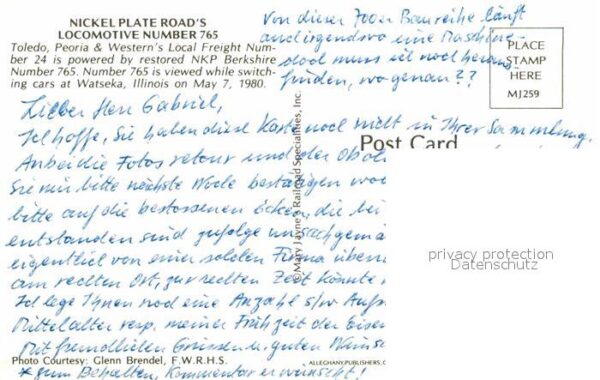 NICKEL PLATE ROAD'S
LOCOMOTIVE NUMBER 765
Toledo, Peoria & Western's Local Freight Num-
ber 24 is powered by restored NKP Berkshire
Number 765. Number 765 is viewed while switch-
ing cars at Watseka, Illinois on May 7, 1980.
Von dieser 700er Baureihe läuft
auch irgendwo eine Maschine
doch muss ich noch heraus-
finden, wo genau??
PLACE
STAMP
HERE
MJ259
Lieber Herr Gabriel,
Ich hoffe, Sie haben diese Karte noch nicht in Ihrer Sammlung.
Post Card
Anbei die Fotos retour und der
Sie mir bitte nächste Woche bestätigen
bitte auf die bestossenen Ecken, die bei
entstanden sind zufolge
eigentlich von einer solchen Firma
am rechten Ort, zur rechten Zeit könnte
Ich lege Ihnen noch eine Anzahl s/w
Mittelalter resp. meiner Frühzeit der
Mit freundlichen Grüssen u. guten
* zum Behalten, Kommentar erwünscht!
©Mary Jayne's Railroad Specialties, Inc.
privacy protection
Datenschutz
Photo Courtesy: Glenn Brendel, F.W.R.H.S.
ALLEGHANY PUBLISHERS,